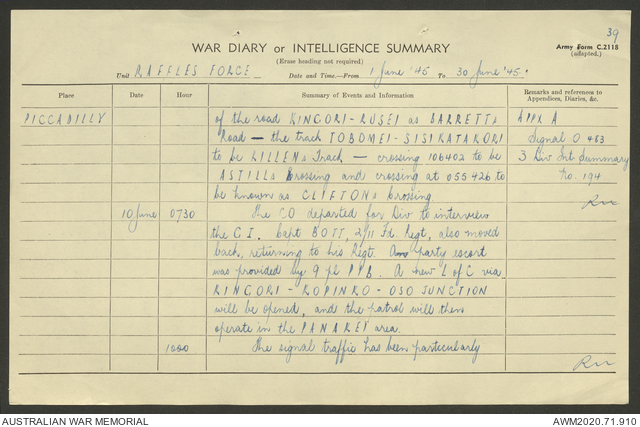 39
WAR DIARY or INTELLIGENCE SUMMARY
Army Form C.2118
(adapted.)
(Erase heading not required)
Unit RAFFLES FORCE Date and Time.—From 1 June '45 To 30 June '45.
Place Date Hour Summary of Events and Information Remarks and references to Appendices, Diaries, &c.
PICCADILLY of the road KINGORI - RUSEI as BARRETTs APPX A
Road — the track TOBOMEI - SISIKATAKORI Signal O 483
to be KILLENs Track — crossing 106402 to be 3 Div Int Summary
ASTILLs Crossing and crossing at 055426 to No. 194
be known as CLIFTONs Crossing
10 June 0730 The CO departed for Div to interview
the G I. Capt BOTT, 2/11 Fd. Regt, also moved
back, returning to his Regt. A party escort
was provided by 9 pl PIB. A new L of C via
KINGORI - KOPINKO - OSO JUNCTION
will be opened, and the patrol will then
operate in the PANAKEI area.
1200 The signal traffic has been particularly
AUSTRALIAN WAR MEMORIAL
AWM2020.71.910